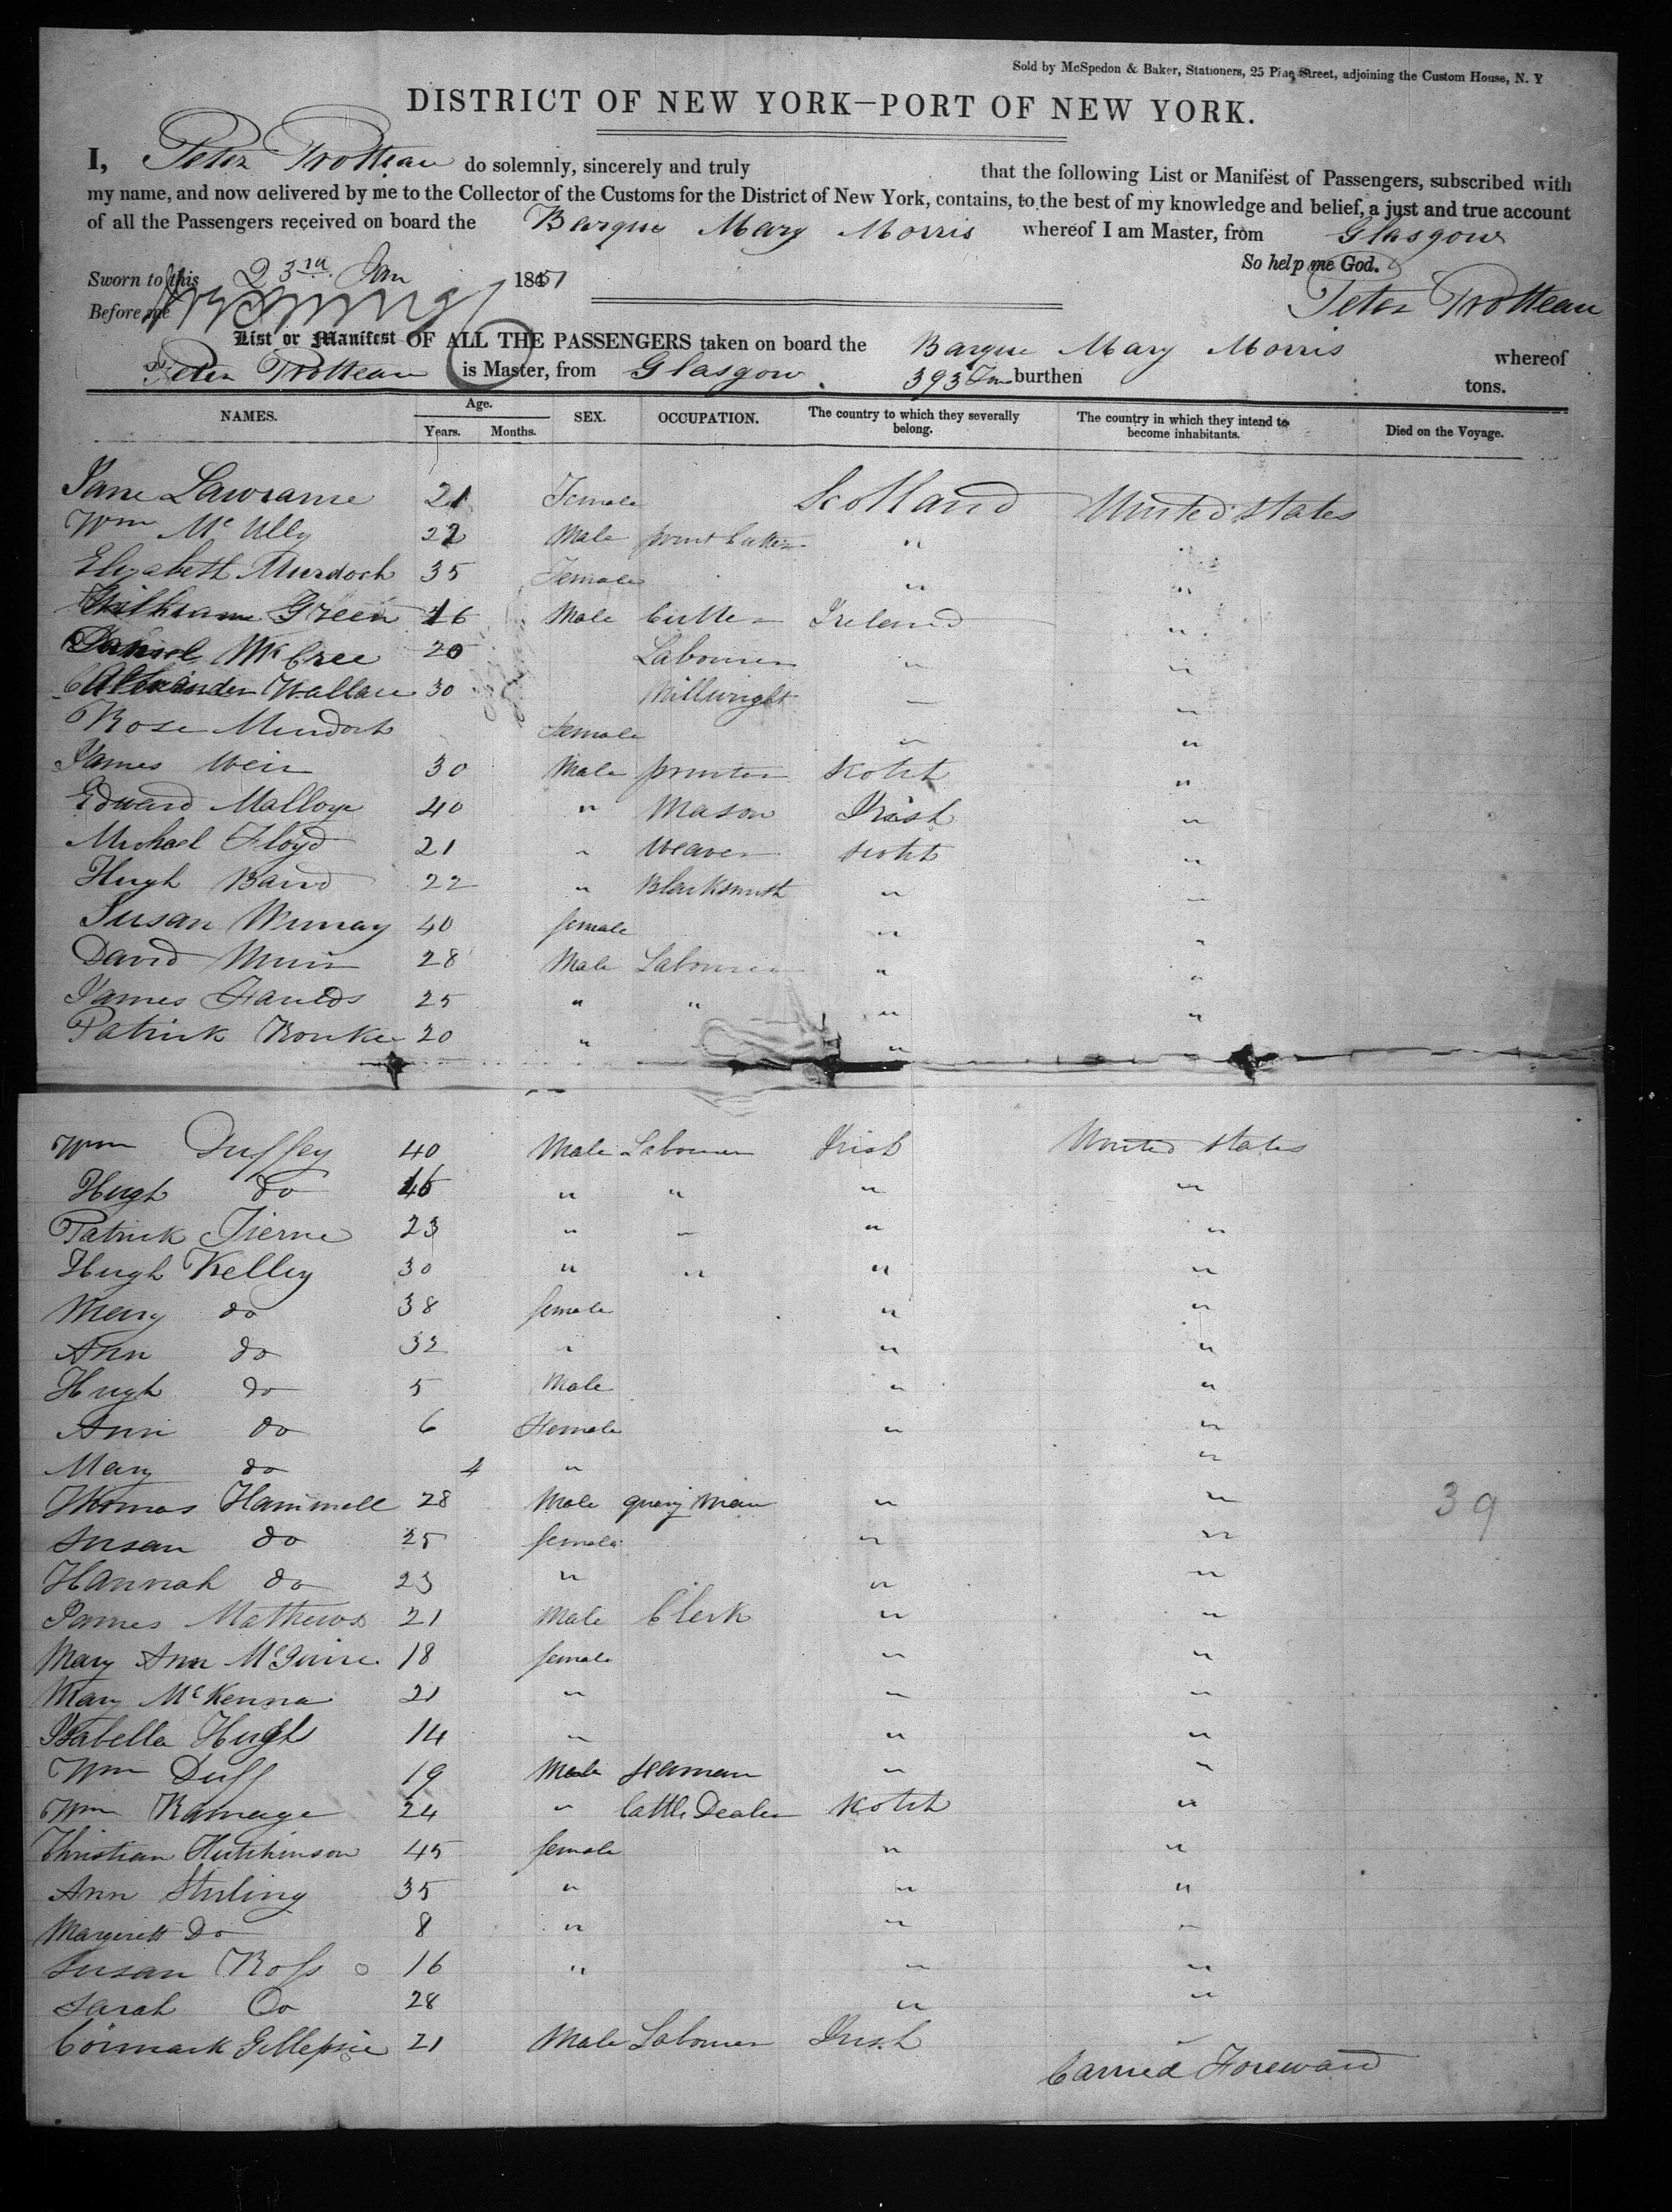 Sold by McSpedon & Baker, Stationers, 25 Pine Street, adjoining the Custom House, N. Y
DISTRICT OF NEW YORK—PORT OF NEW YORK.
I, Peter Trotteau do solemnly, sincerely and truly that the following List or Manifest of Passengers, subscribed with
my name, and now delivered by me to the Collector of the Customs for the District of New York, contains, to the best of my knowledge and belief, a just and true account
of all the Passengers received on board the Barque Mary Morris whereof I am Master, from Glasgow
So help me God.
Sworn to this 23rd Jan 1851
Before me
Peter Trotteau
List or Manifest OF ALL THE PASSENGERS taken on board the Barque Mary Morris whereof
Peter Trotteau is Master, from Glasgow. 393 Tons burthen tons.
NAMES. Age. Years. Months. SEX. OCCUPATION. The country to which they severally belong. The country in which they intend to become inhabitants. Died on the Voyage.
Jane Lawranse 21 Female Scotland United States
Wm McUlly 22 Male print Cutter " "
Elizabeth Murdoch 35 Female " "
William Green 16 Male Cutter Ireland "
Daniel McCree 20 Labourer " "
Alexander Wallace 30 Millwright " "
Rose Murdoch female " "
James Weir 30 Male printer Scotch "
Edward Malloye 40 " Mason Irish "
Michael Floyd 21 " Weaver Scotch "
Hugh Baird 22 " Blacksmith " "
Susan Murray 40 female " "
David Muir 28 Male Labourer " "
James Faulds 25 " " " "
Patrick Rourke 20 " "
Wm Duffey 40 Male Labourer Irish United States
Hugh do 16 " " " "
Patrick Tierne 23 " " " "
Hugh Kelley 30 " " " "
Mary do 38 female " "
Ann do 32 " " "
Hugh do 5 Male " "
Ann do 6 Female " "
Mary do 4 " "
Thomas Hammell 28 Male quary Man " " 39
Susan do 25 female " "
Hannah do 23 " " "
James Mathews 21 Male Clerk " "
Mary Ann McGuire 18 female " "
Mary McKenna 21 " " "
Isabella Hugh 14 " " "
Wm Duff 19 Male Seaman " "
Wm Ramage 24 " Cattle Dealer Scotch "
Christian Hutchinson 45 female " "
Ann Sterling 35 " " "
Margerett Do 8 " " "
Susan Ross 16 " " "
Sarah Do 28 " "
Cormack Gillespie 21 Male Labourer Irish "
Carried Foreward